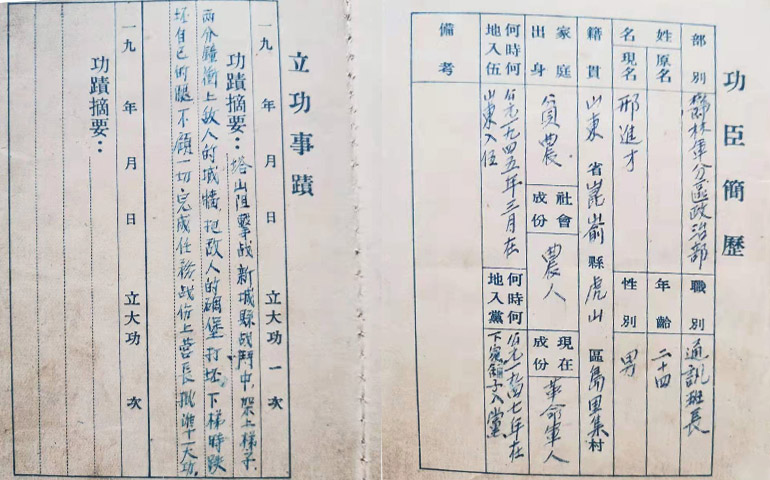 功臣簡歷
部別 鬱林軍分區政治部 職別 通訊班長
姓名 原名 年齡 二十四
現名 邢進才 性別 男
籍貫 山東省崑嵛縣虎山區島里集村
家庭出身 貧農 社會成份 農人 現在成份 革命軍人
何時何地入伍 公元一九四五年三月在山東入伍 何時何地入黨 公元一九四七年在下窩舖子入黨
備考
立功事蹟
一九 年 月 日 立大功一次
功蹟摘要：塔山阻擊战新城縣战鬥中,架上梯子
两分鐘衝上敌人的城牆,把敌人的碉堡打坯,下梯時跌
坯自己的腿,不顧一切完成任務战份上营長批准十一大功
一九 年 月 日 立大功 次
功蹟摘要：